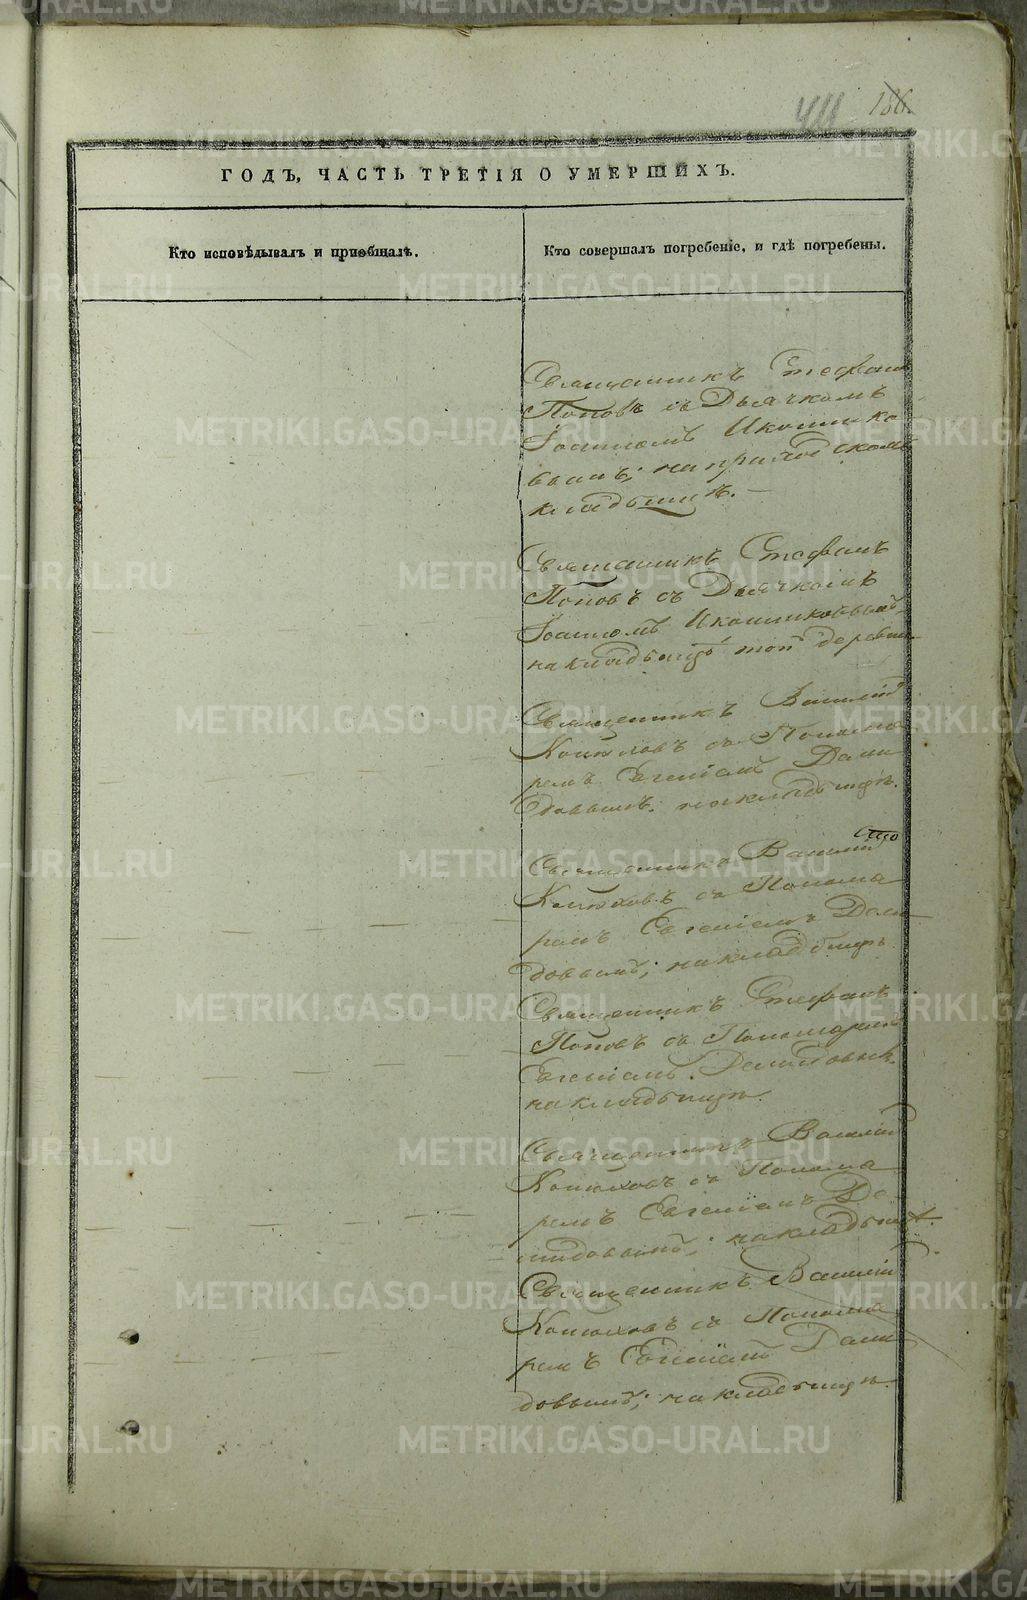 411 186.
ГОДЪ, ЧАСТЬ ТРЕТІЯ О УМЕРШИХЪ.
Кто исповѣдывалъ и пріобщалъ.
Кто совершалъ погребеніе, и гдѣ погребены.
Священникъ Стефанъ
Поповъ съ Дьячкомъ
Іоанномъ Иконнико
вымъ; на приходскомъ
кладбищѣ.
Священникъ Стефанъ
Поповъ съ Дьячкомъ
Іоанномъ Иконниковымъ
на кладбищѣ той деревни
Священникъ Василій
Конюховъ съ Понома
ремъ Евгеніемъ Деми
довымъ; на кладбищѣ.
Священникъ Василій
Конюховъ съ Понома
ремъ Евгеніемъ Деми
довымъ; на кладбищѣ
Священникъ Стефанъ
Поповъ съ Пономаремъ
Евгеніемъ Демидовымъ
на кладбищѣ.
Священникъ Василій
Конюховъ съ Понома
ремъ Евгеніемъ Де-
мидовымъ; на кладбищѣ.
Священникъ Василій
Конюховъ съ Понома
ремъ Евгеніемъ Деми
довымъ; на кладбищѣ.
METRIKI.GASO-URAL.RU